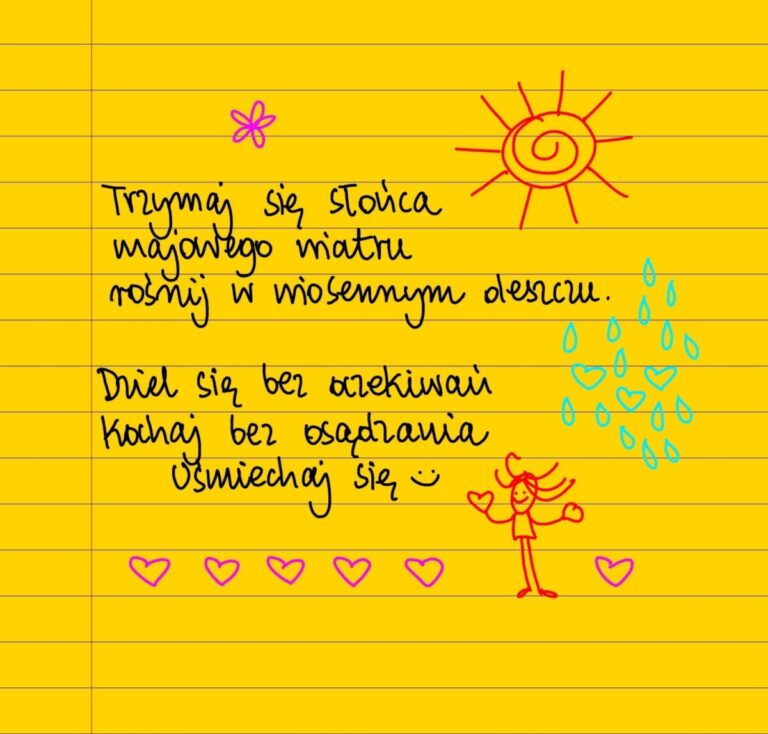 Trzymaj się słońca
majowego wiatru
rośnij w wiosennym deszczu.
Dziel się bez oczekiwań
Kochaj bez osądzania
Uśmiechaj się